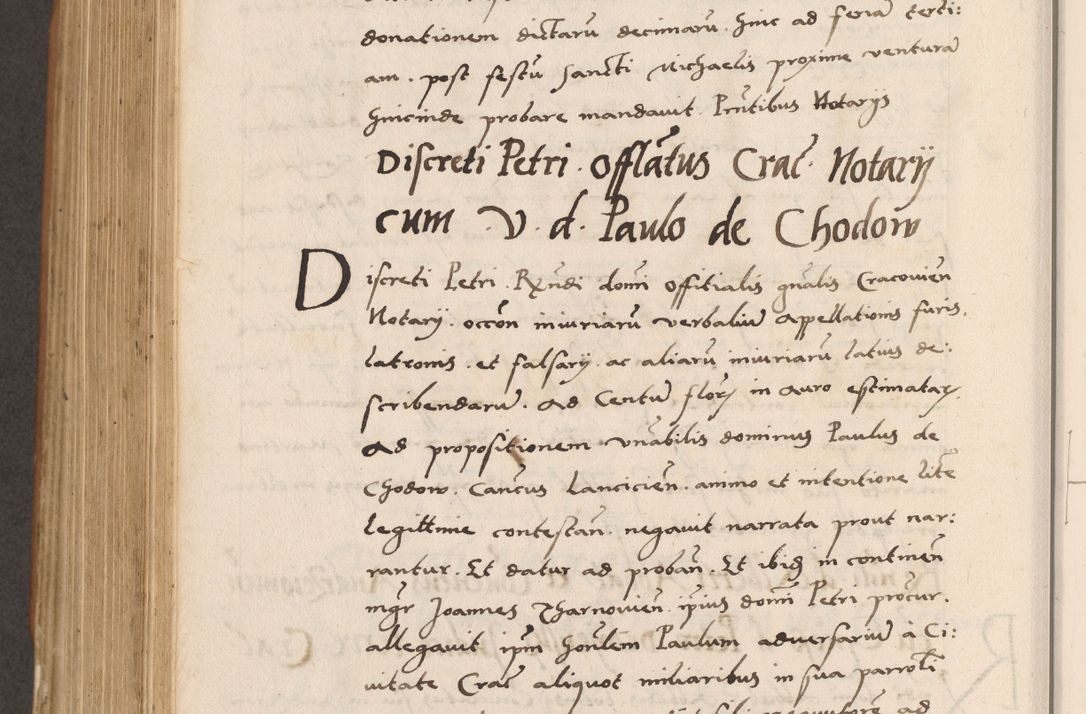 donationem dictarũ decimarũ. Hinc ad feriã terti:
am. post festũ sancti Michaelis proxime venturã
hincinde probare mandavit. Pñtibus Notarijs
Discreti Petri. Offlãtus Crac̃. Notarij
cum V. d. Paulo de Chodow
Discreti Petri. Rx̃ndi domĩ offitialis gñalis Cracovieñ
Notarij. occõn iniuriarũ verbaliũ appellationis furis,
latronis. et falsarij. ac aliarũ iniuriarũ latius de:
scribendarũ. ad Centũ flor in auro estimatar
ad propositionem vñabilis dominus Paulus de
Chodow. Cañcus Lancicieñ. animo et intentione litẽ
legittime contestañ. negavit narrata prout nar:
rantur. Et datur ad probañ. Et ibid in contineñ
mgr Joannes Tharnovieñ. ip̃ius domĩ Petri procur.
allegavit ip̃m hoñlem Paulum adversariũ à Ci:
vitate Crac̃ aliquot miliaribus in sua parroc̃li